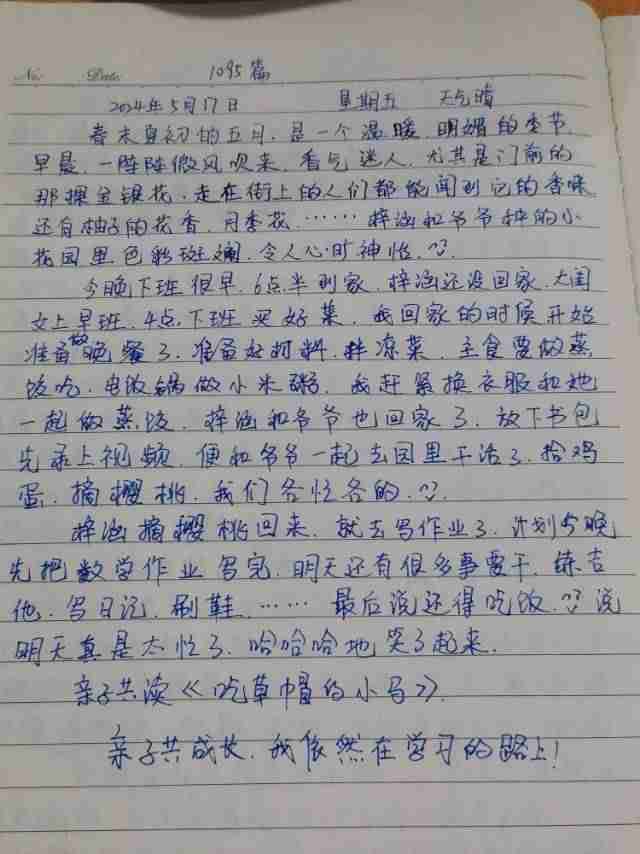 No. Date 1095篇
2024年5月17日 星期五 天气晴
春末夏初的五月,是一个温暖、明媚的季节,
早晨,一阵阵微风吹来,香气迷人,尤其是门前的
那棵金银花,走在街上的人们都能闻到它的香味,
还有柚子的花香,月季花……梓涵和爷爷种的小
花园里色彩斑斓,令人心旷神怡,
今晚下班很早,6点半到家,梓涵还没回家,大闺
女上早班,4点下班买好菜,我回家的时候开始
准备做晚餐了,准备好材料,拌凉菜,主食要做蒸
饭吃,电饭锅做小米粥,我赶紧换衣服和她
一起做蒸饭,梓涵和爷爷也回家了,放下书包
先录上视频,便和爷爷一起去园里干活了,捡鸡
蛋,摘樱桃,我们各忙各的,
梓涵摘樱桃回来,就去写作业了,计划今晚
先把数学作业写完,明天还有很多事要干,练吉
他,写日记,刷鞋……最后说还得吃饭,说
明天真是太忙了,哈哈哈地笑了起来.
亲子共读《吃草帽的小马》.
亲子共成长,我依然在学习的路上!